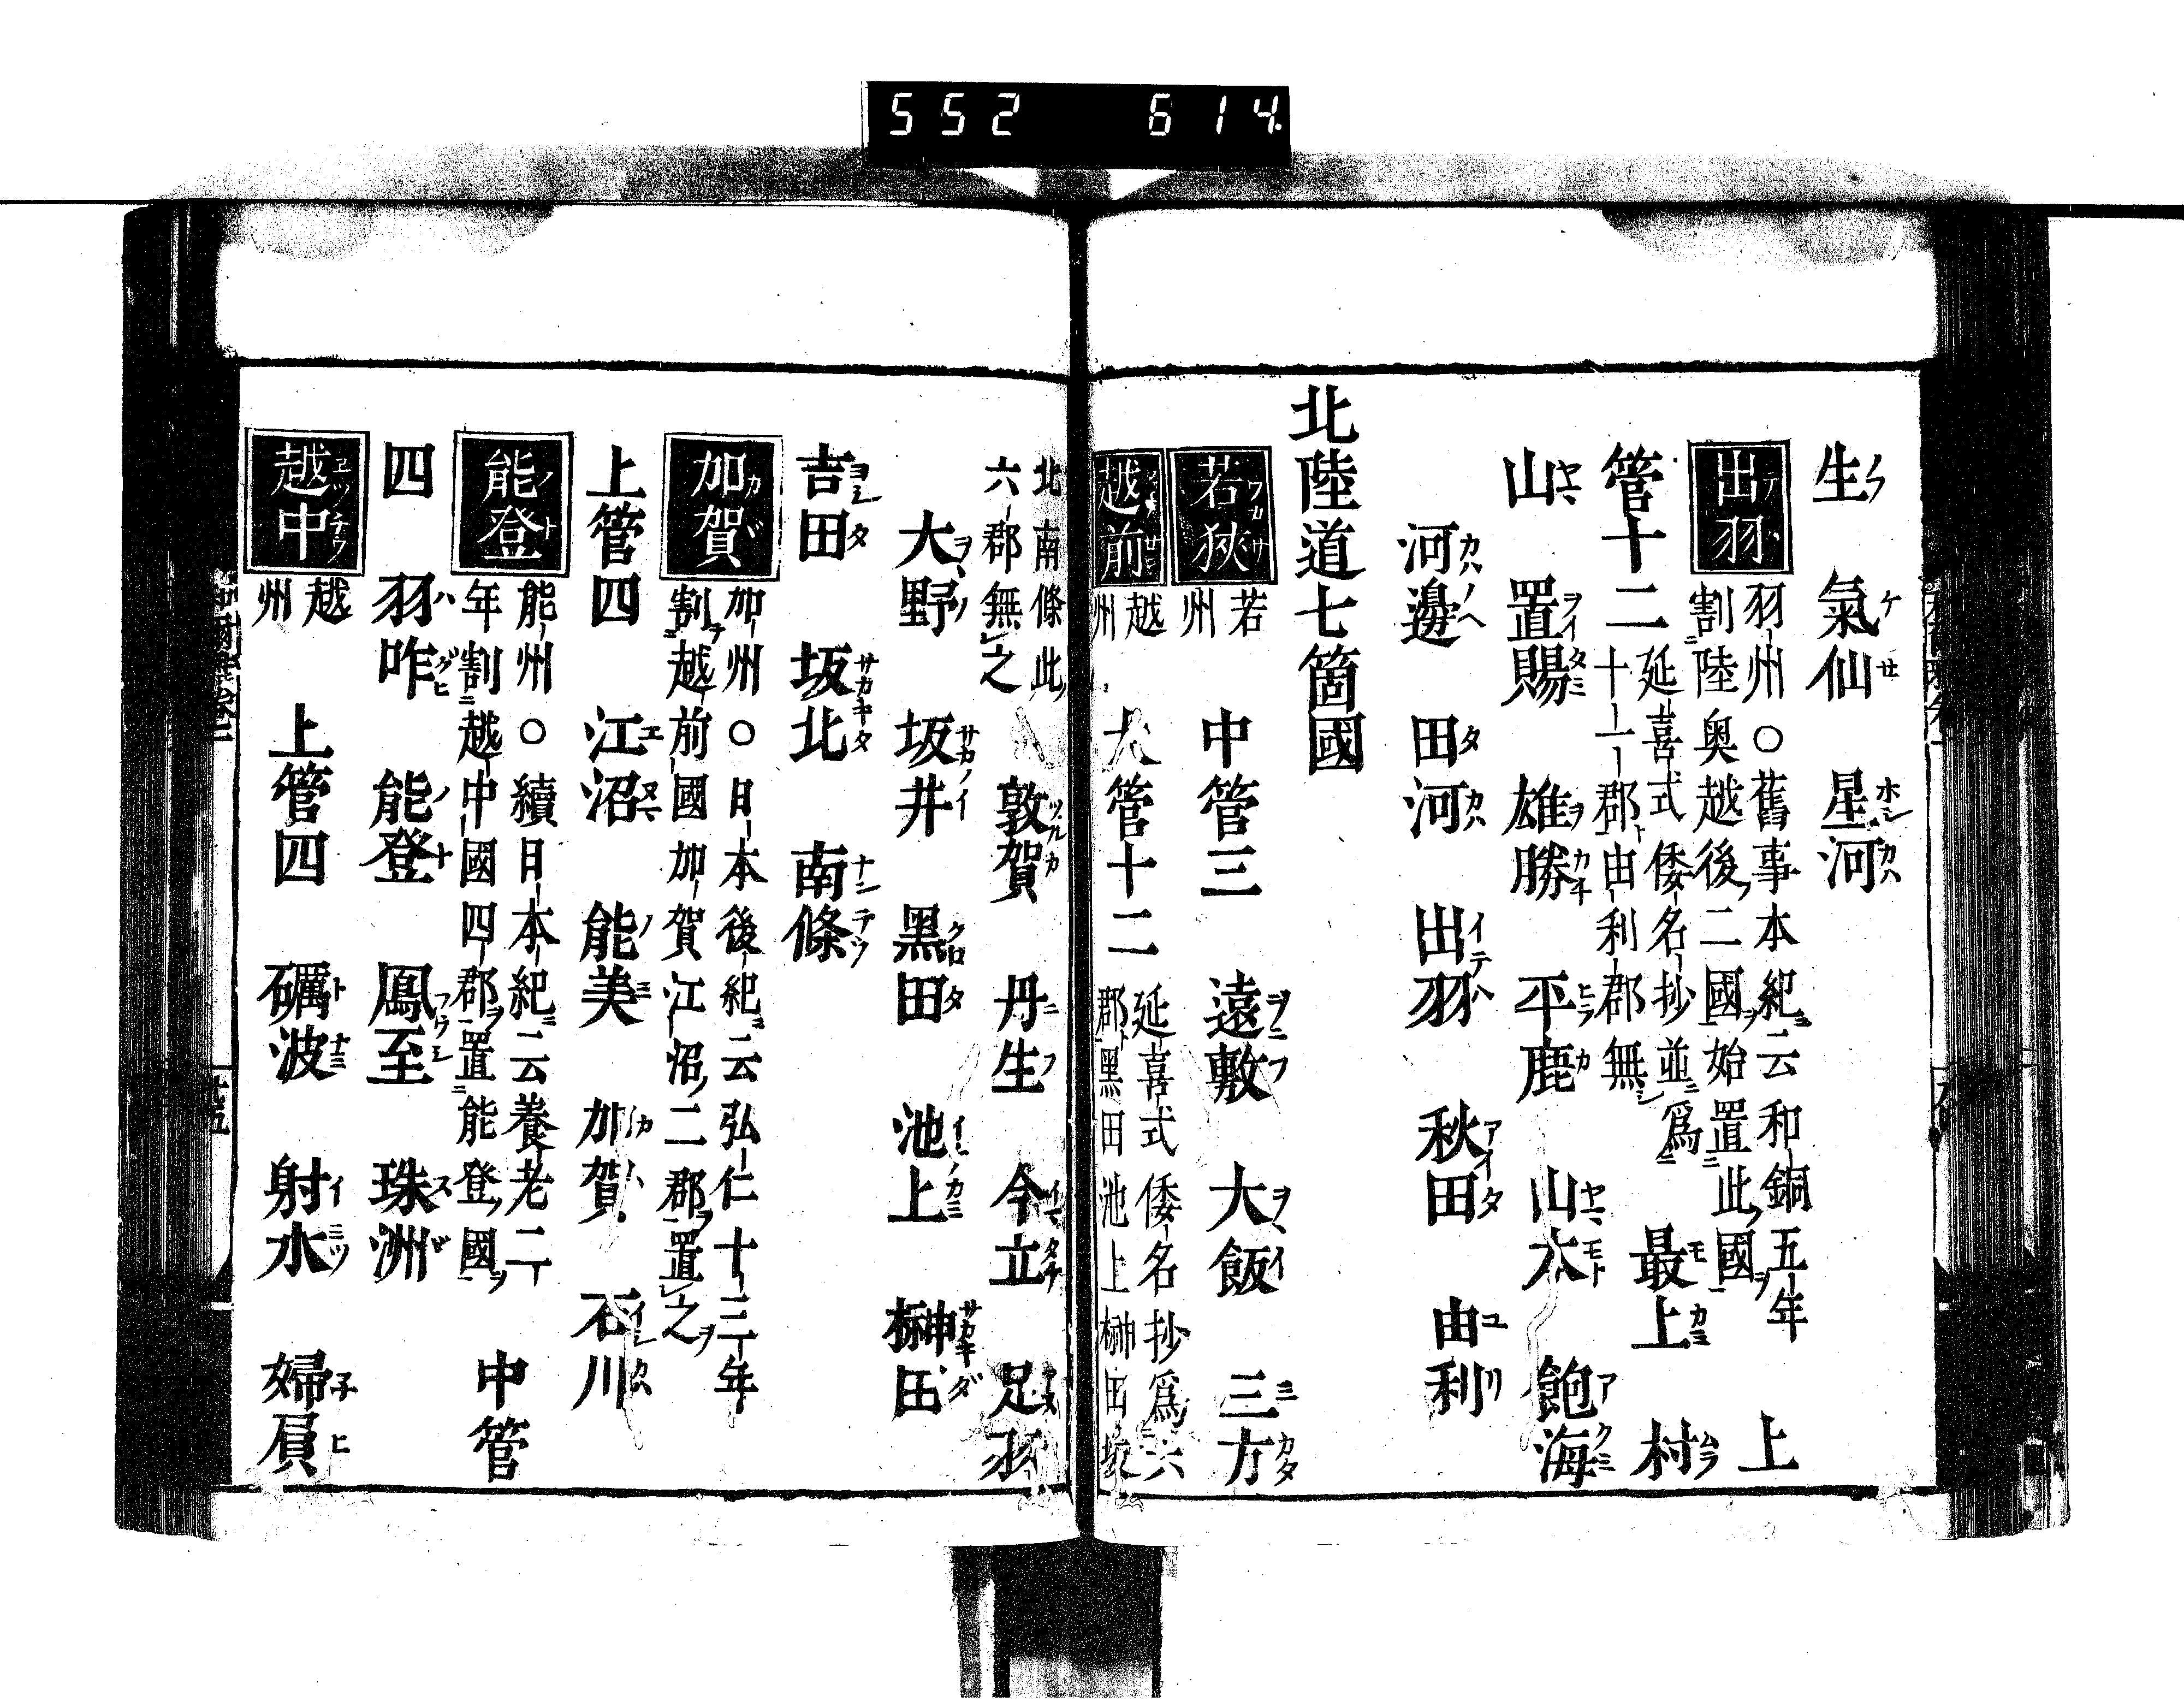 552 614
生 氣仙 星河
出羽 羽州○舊事本紀云和銅五年
割陸奥越後二國始置此國 上
管十二 延喜式倭名抄並爲
十一郡由利郡無 最上 村
山 置賜 雄勝 平鹿 山本 飽海
河邊 田河 出羽 秋田 由利
北陸道七箇國
若狹 若州 中管三 遠敷 大飯 三方
越前 越州 大管十二 延喜式倭名抄爲六
郡黑田池上榊田坂
北南條此
六郡無之 敦賀 丹生 今立 足羽
大野 坂井 黑田 池上 榊田
吉田 坂北 南條
加賀 加州○日本後紀云弘仁十三年
割越前國加賀江沼二郡置之
上管四 江沼 能美 加賀 石川
能登 能州○續日本紀云養老二
年割越中國四郡置能登國 中管
四 羽咋 能登 鳳至 珠洲
越中 越州 上管四 礪波 射水 婦屓